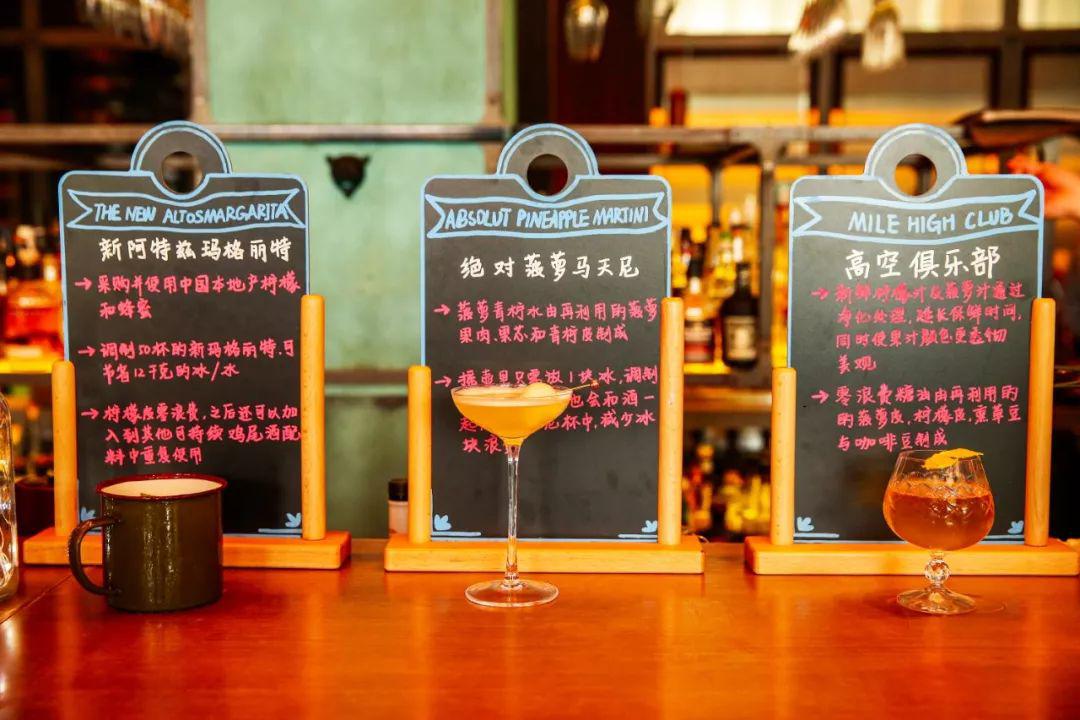 THE NEW ALTOSMARGARITA
新阿特兹玛格丽特
→ 采购并使用中国本地产柠檬
和蜂蜜
→ 调制50杯的新玛格丽特,可
节省12千克的冰/水
→ 柠檬皮零浪费,之后还可以加
入到其他可持续鸡尾酒配
料中重复使用
ABSOLUT PINEAPPLE MARTINI
绝对菠萝马天尼
→ 菠萝青柠水由再利用的菠萝
果肉、果芯和青柠皮制成
→ 摇壶只需放1块冰,调制
也会和酒一
起 杯中,减少冰
块浪
MILE HIGH CLUB
高空俱乐部
→ 新鲜柠檬汁及菠萝汁通过
处理,延长保鲜时间,
同时使果汁颜色更透彻
美观
→ 零浪费糖油由再利用的
的菠萝皮,柠檬皮,熏草豆
与咖啡豆制成